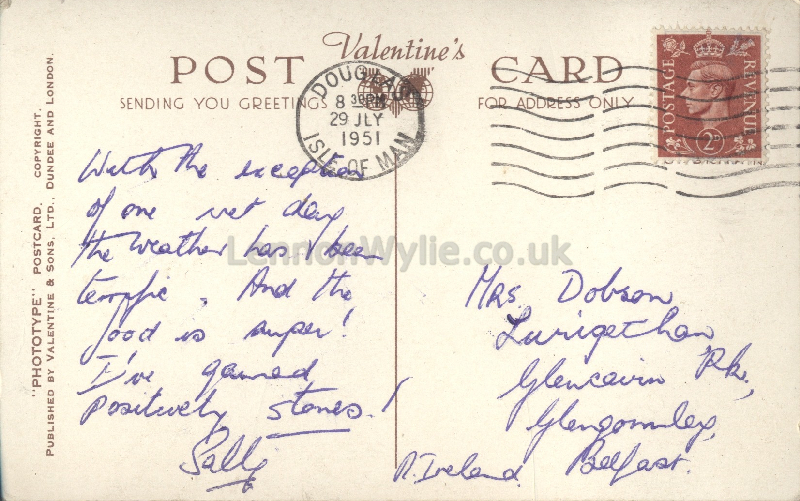 Valentine's
POST CARD
SENDING YOU GREETINGS
FOR ADDRESS ONLY
DOUGLAS
8 30 PM
29 JLY
1951
ISLE OF MAN
POSTAGE
REVENUE
2D
"PHOTOTYPE" POSTCARD. COPYRIGHT.
PUBLISHED BY VALENTINE & SONS, LTD., DUNDEE AND LONDON.
With the exception
of one wet day
the weather has been
terrific. And the
food is super!
I've gained
positively stones!
Sally
Mrs Dobson
Lurigethan
Glencairn Pk.,
Glengormley,
Belfast.
N. Ireland
LennonWylie.co.uk